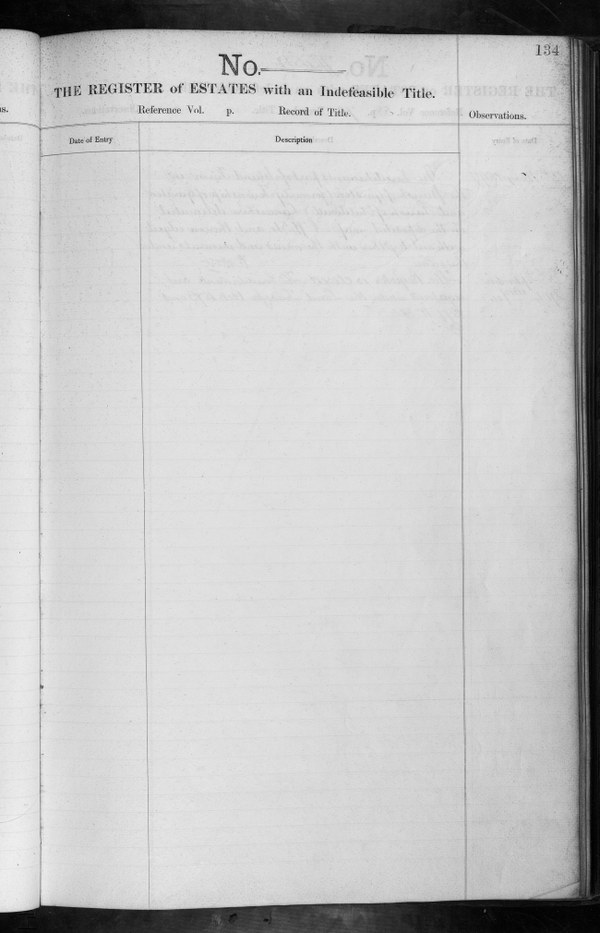 134
No.
THE REGISTER of ESTATES with an Indefeasible Title.
s.
Reference Vol. p. Record of Title.
Observations.
Date of Entry
Description